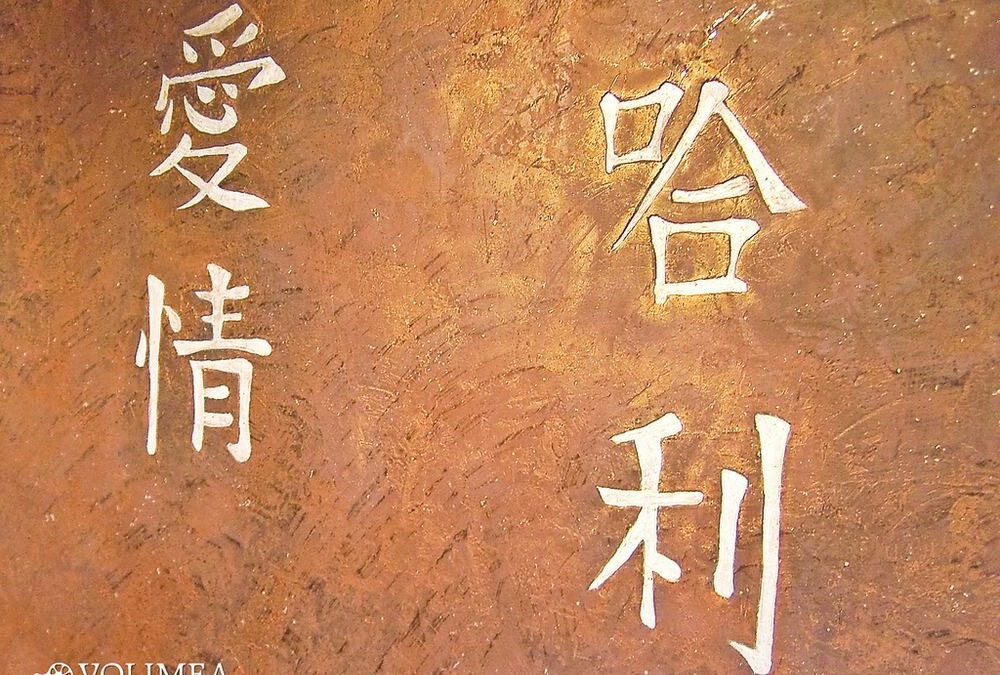 哈利
愛情
VOLIMEA